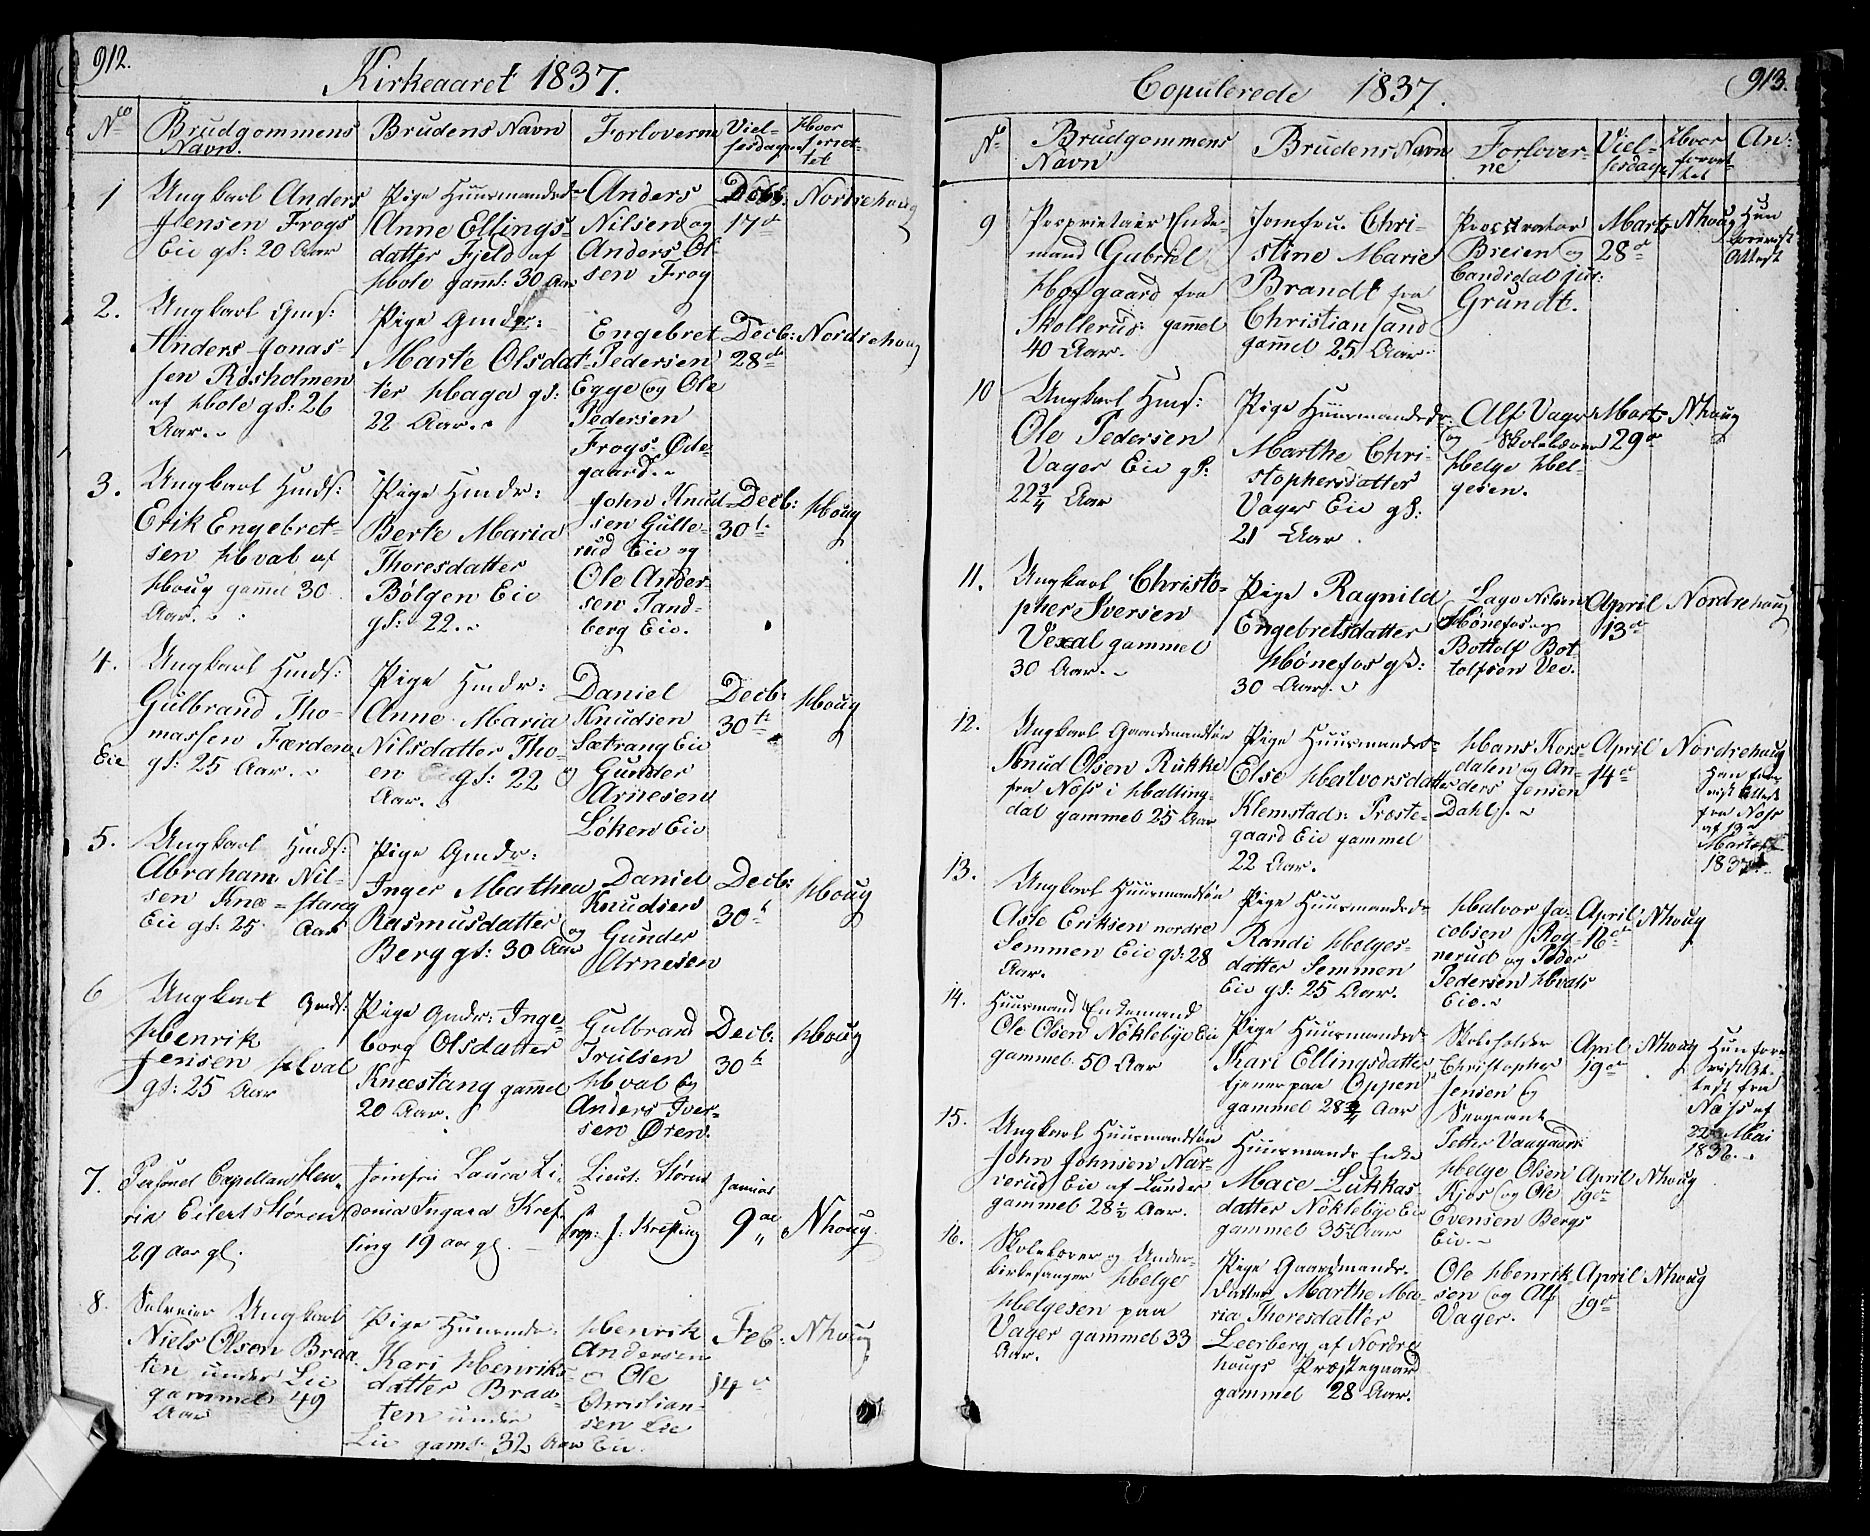 912.
Kirkeaaret 1837.
No
Brudgommens Navn.
Brudens Navn
Forloverne
Vielsesdagen
Hvor forrettet
1
Ungkarl Anders
Jensen Frogs
Eie gl: 20 Aar
Pige Huusmandsd:
Anne Ellings-
datter Fjeld af
Hole gaml: 30 Aar
Anders
Nilsen og
Anders Ol-
sen Frog
Decb:
17de
Nordrehoug
2.
Ungkarl Gms:
Anders Jonas-
sen Røsholmen
af Hole gl: 26
Aar.
Pige Gmdr:
Marte Olsdat-
ter Haga gl:
22 Aar.
Engebret
Pedersen
Egge og Ole
Pedersen
Frogs: Øde-
gaard.
Decb:
28de
Nordrehoug
3.
Ungkarl Hmds:
Erik Engebret-
sen Hval af
Houg gammel 30
Aar.
Pige Hmdr:
Berte Maria
Thoresdatter
Bølgen Eie
gl: 22.
John Knud-
sen Gülle-
rud Eie og
Ole Ander-
sen Tand-
berg Eie.
Decb:
30te
Houg
4.
Ungkarl Hmds:
Gülbrand Tho-
massen Færden
Eie gl: 25 Aar.
Pige Hmdr:
Anne Maria
Nilsdatter Tho-
en Eie gl: 22
Aar.
Daniel
Knudsen
Sætrang Eie
og Gunder
Arnesen
Løken Eie
Decb:
30te
Houg
5.
Ungkarl Hmds:
Abraham Nil-
sen Knæ-stang
Eie gl: 25 Aar
Pige Gmdr:
Inger Mathea
Rasmusdatter
Berg gl: 30 Aar
Daniel
Knudsen
og Gunder
Arnesen
Decb:
30te
Houg
6
Ungkarl Gmds:
Henrik
Jensen Hval
gl: 25 Aar
Pige Gmdr: Inge-
borg Olsdatter
Knæstang gammel
20 Aar.
Gulbrand
Trulsen
Hval og
Anders Iver-
sen Øren.
Decb:
30te
Houg
7.
Personel Capellan Hen-
rik Eilert Støren
29 aar gl.
Jomfru Laura Li-
donia Ingara Kref-
ting 19 aar gl.
Lieut: Støren
J: Krefting
Januar
9de
Nhoug.
8.
Ungkarl
Niels Olsen Braa-
ten under Lie
gammel 49
Aar
Pige Huusmdr:
Kari Henriks-
datter Braa-
ten under
Lie gaml: 32 Aar
Henrik
Andersen
og Ole
Christian-
sen Lie
Eie.
Feb:
14de
Nhoug
Copulerede 1837.
913.
No
Brudgommens Navn
Brudens Navn
Forloverne
Vielsesdagen
Hvor forrettet
An:
9
Proprietair Enke-
mand Gabriel
Hofgaard fra
Skollerud: gammel
40 Aar.
Jomfru Chri-
stine Marie
Brandt fra
Christiansand
gammel 25 Aar.
Procurator
Breien og
Candidat jur:
Grundt.
Marts
28de
Nhoug
Hun
forevist
Attest
10
Ungkarl Hms:
Ole Pedersen
Vager Eie gl:
22 3/4 Aar
Pige Huusmandsdr:
Marthe Chri-
stophersdatter
Vager Eie gl:
21 Aar.
Alf Vager
og Skolelærer
Helge Hel-
gesen.
Marts
29de
Nhoug
11.
Ungkarl Christo-
pher Iversen
Vexal gammel
30 Aar.
Pige Ragnild
Engebretsdatter
Hønefos gl:
30 Aar.
Lage Nilsen
Hønefos og
Bottolf Bot-
tolfsen Vee.
April
13de
Nordrehoug
12.
Ungkarl Gaardmandsøn
Knud Olsen Rukke
fra Næss i Halling-
dal gammel 25 Aar
Pige Huusmandsd:
Else Halvorsdatter
Klemstads: Præste-
gaard Eie gammel
22 Aar.
Hans Kors-
dalen og An-
ders Jensen
Dahl.
April
14de
Nordrehoug
Han fore-
vist Attest
fra Næss
af 19de
Marts
1837.
13.
Ungkarl Huusmandsøn
Asle Eriksen nordre
Semmen Eie gl: 28
Aar.
Pige Huusmandsd:
Randi Helges-
datter Semmen
Eie gl: 25 Aar.
Halvor Ja-
cobsen Rog-
nerud og Peder
Pedersen Hvals
Eie.
April
Nhoug
14.
Huusmand Enkemand
Ole Olsen Nøklebye Eie
gammel 50 Aar
Pige Huusmandsd:
Kari Ellingsdatter
tjener paa Oppen
gammel 28 3/4 Aar
Skoleholder
Christopher
Jensen og
Sergeant
Petter Vaagaard
April
19de
Nhoug
Hun fore-
vist At-
test fra
Næss af
22de Mai
1832.
15.
Ungkarl Huusmandsøn
John Johnsen Nar-
verud Eie af Lunder
gammel 28 1/2 Aar.
Huusmands Enke
Mace Lukkas-
datter Nøklebye Eie
gammel 35 1/2 Aar
Helge Olsen
Kjos og Ole
Evensen Bergs
Eie.
April
19de
Nhoug
16.
Skolelærer og Under-
kirkesanger Helge
Helgesen paa
Vager gammel 33
Aar.
Pige Gaardmands-
datter Marthe Ma-
ria Thoresdatter
Leerberg af Nordre-
hougs Præstegaard
gammel 28 Aar.
Ole Henrik-
sen og Alf
Vager.
April
19de
Nhoug